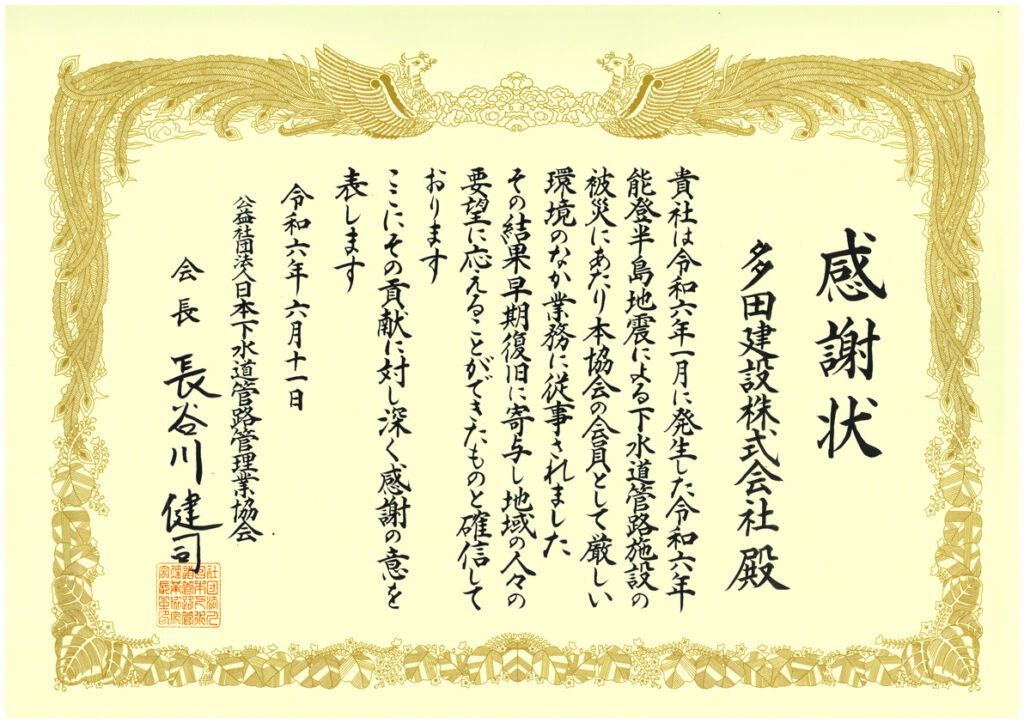 感謝状
多田建設株式会社 殿
貴社は令和六年一月に発生した令和六年
能登半島地震による下水道管路施設の
被災にあたり本協会の会員として厳しい
環境のなか業務に従事されました
その結果早期復旧に寄与し地域の人々の
要望に応えることができたものと確信して
おります
ここにその貢献に対し深く感謝の意を
表します
令和六年六月十一日
公益社団法人日本下水道管路管理業協会
会長 長谷川健司